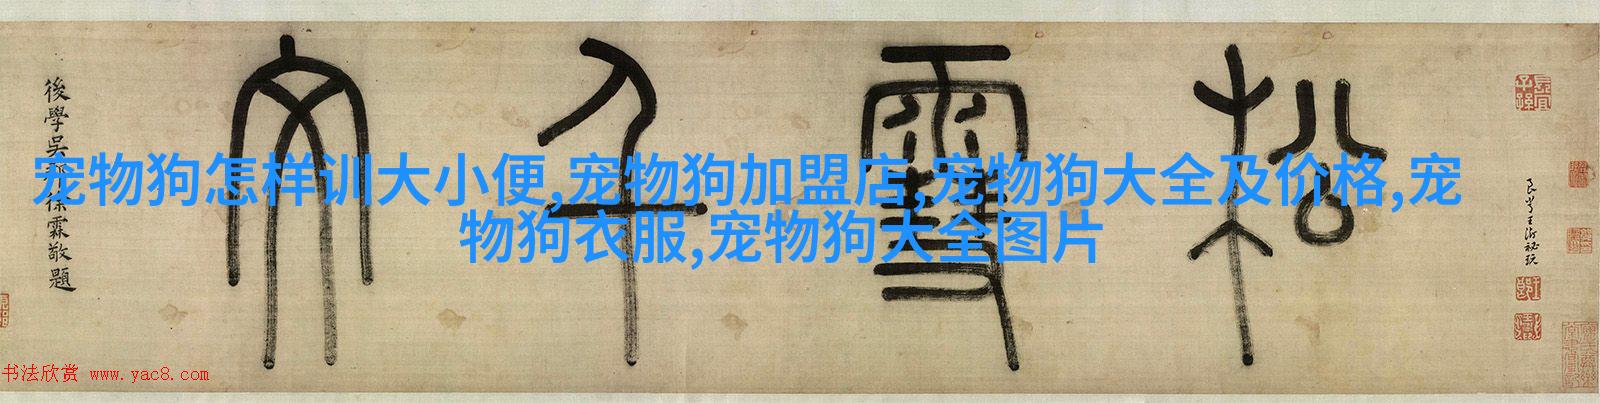 松雪千文
後學吳郡徐霖敬題
宠物狗怎样训大小便,宠物狗加盟店,宠物狗大全及价格,宠
物狗衣服,宠物狗大全图片
长宜子孫
王濟秘玩
书法欣赏 www.yac8.com